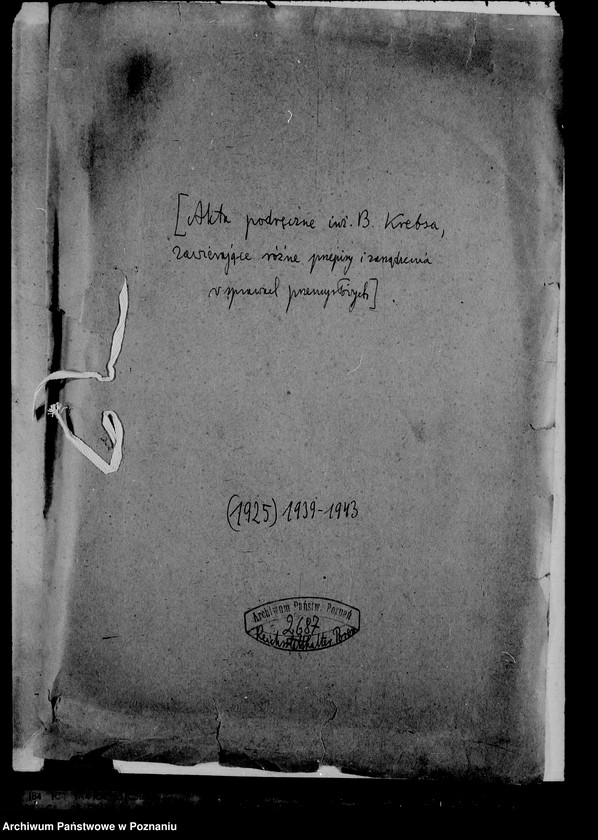 [Akta podręczne inż. B. Krebsa,
zawierające różne przepisy i zarządzenia
w sprawach przemysłowych]
(1925) 1939-1943
Archiwum Państw. Poznań
2687
Reichsstatthalter Posen
Archiwum Państwowe w Poznaniu